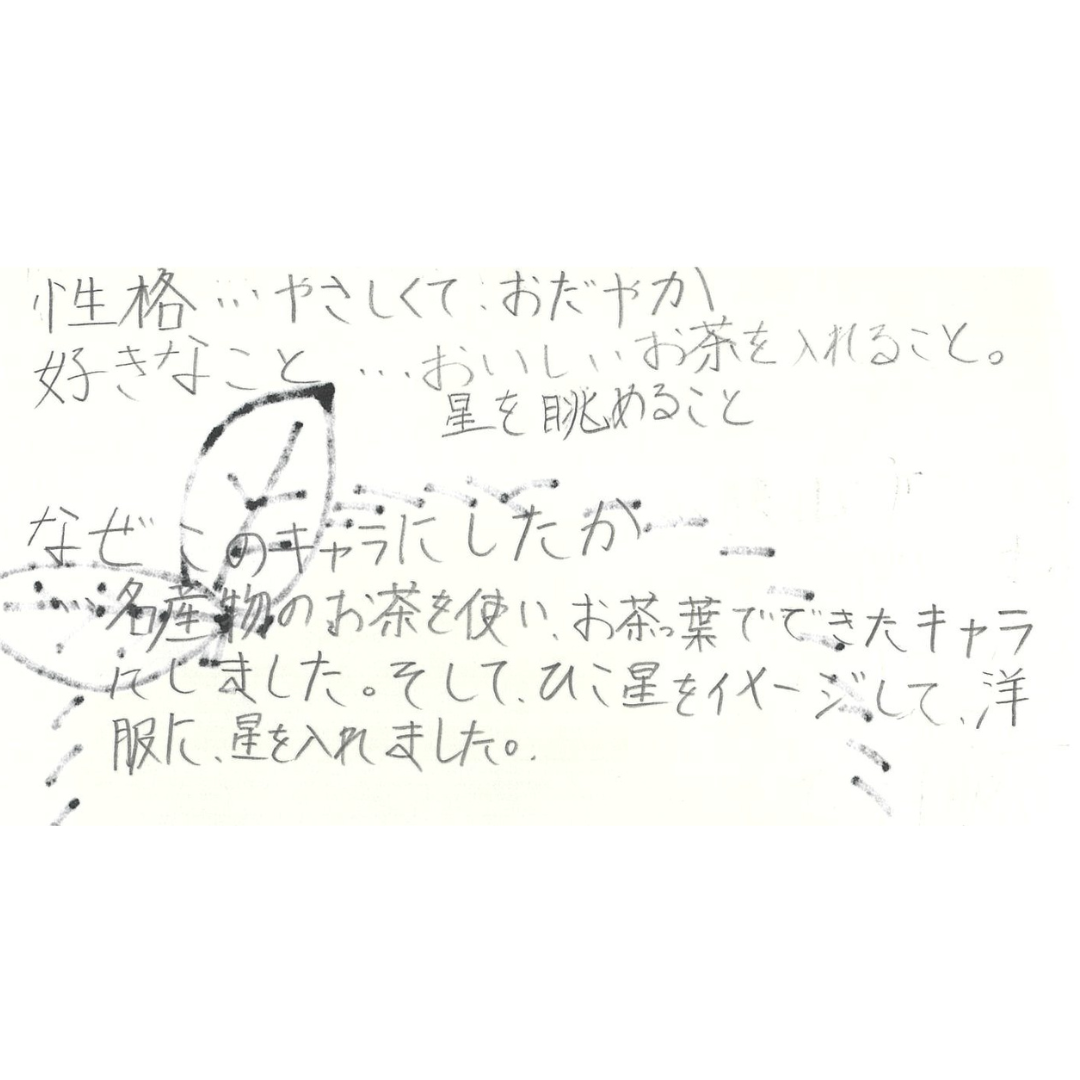 性格…やさしくて、おだやか
好きなこと…おいしいお茶を入れること。
星を眺めること
なぜこのキャラにしたか
名産物のお茶を使い、お茶っ葉でできたキャラ
にしました。そして、ひこ星をイメージして、洋
服に、星を入れました。